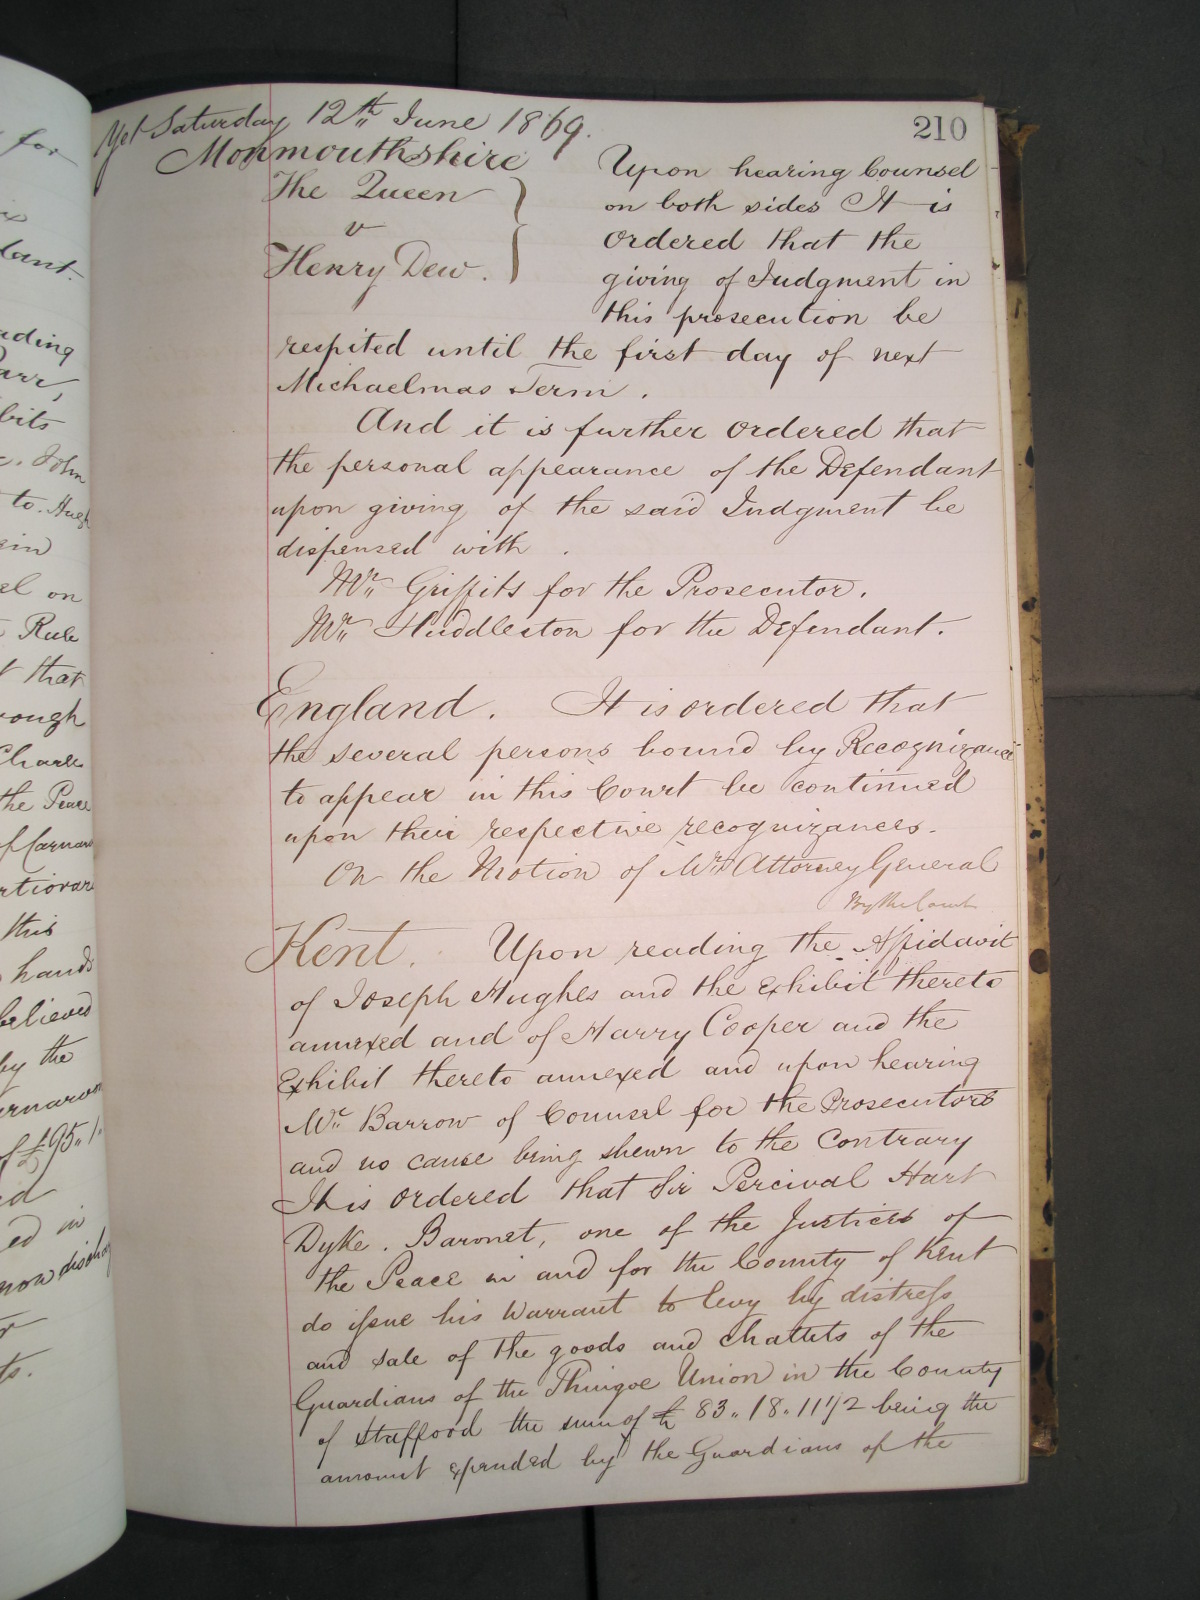 Yet Saturday 12th June 1869.
210
Monmouthshire
The Queen
v
Henry Dew.
Upon hearing Counsel
on both sides It is
Ordered that the
giving of Judgment in
this prosecution be
respited until the first day of next
Michaelmas Term.
And it is further ordered that
the personal appearance of the Defendant
upon giving of the said Judgment be
dispensed with.
Mr. Griffits for the Prosecutor.
Mr. Huddleston for the Defendant.
England. It is ordered that
the several persons bound by Recognizance
to appear in this Court be continued
upon their respective recognizances.
On the Motion of Mr. Attorney General
By the Court
Kent. Upon reading the Affidavit
of Joseph Hughes and the exhibit thereto
annexed and of Harry Cooper and the
Exhibit thereto annexed and upon hearing
Mr. Barrow of Counsel for the Prosecutors
and no cause being shewn to the contrary
It is ordered that Sir Percival Hart
Dyke. Baronet, one of the Justices of
the Peace in and for the County of Kent
do issue his Warrant to levy by distress
and sale of the goods and chattels of the
Guardians of the Union in the County
of Stafford the sum of £ 83.. 18.. 11 1/2 being the
amount expended by the Guardians of the
for
lant
ading
arr,
bits
John
to. Hugh
ein
el on
Rule
that
rough
Charles
the Peace
of Carnarv
rtiorari
this
hands
believed
by the
rnarvon
of £95.. 1..
id
ed in
now discharg
r
ts.